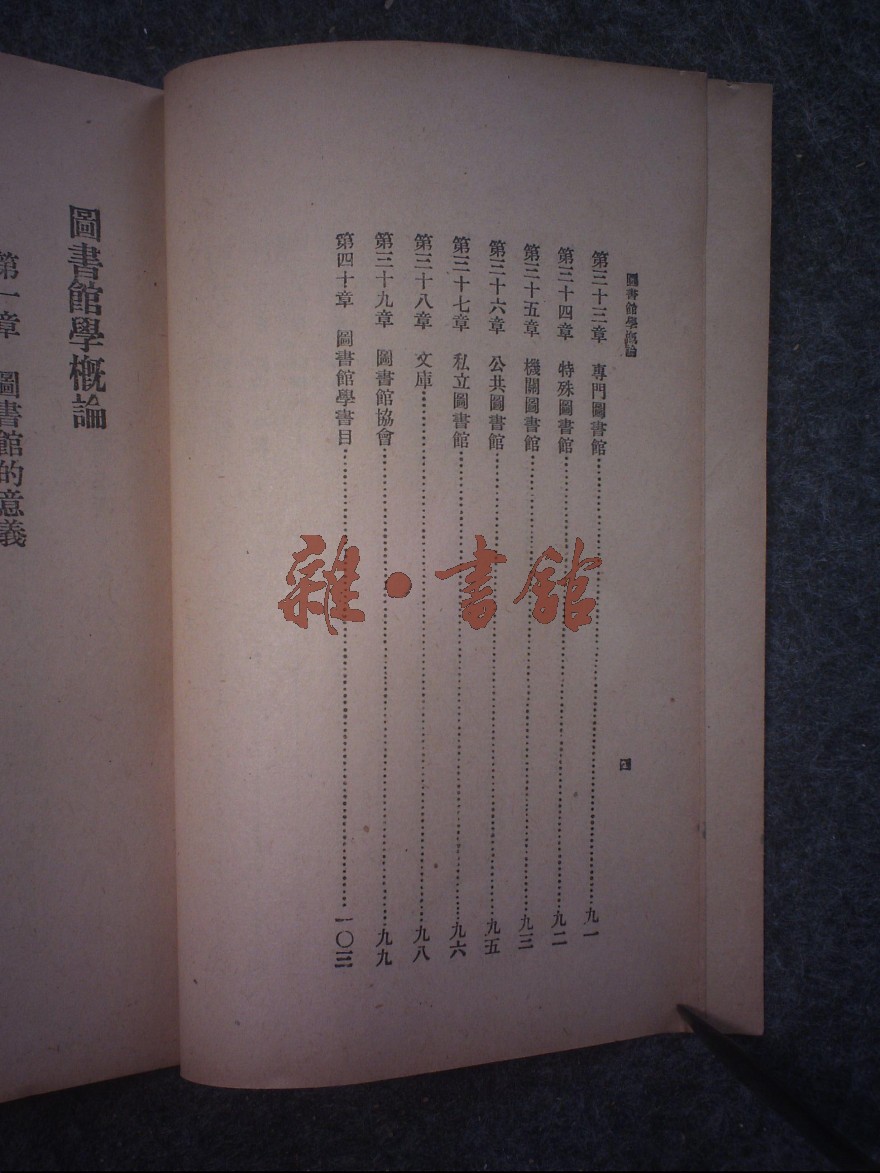 圖書館學概論
第三十三章　專門圖書館……九一
第三十四章　特殊圖書館……九二
第三十五章　機關圖書館……九三
第三十六章　公共圖書館……九五
第三十七章　私立圖書館……九六
第三十八章　文庫……九八
第三十九章　圖書館協會……九九
第四十章　圖書館學書目……一〇三
四
雜·書館
圖書館學概論
第一章　圖書館的意義